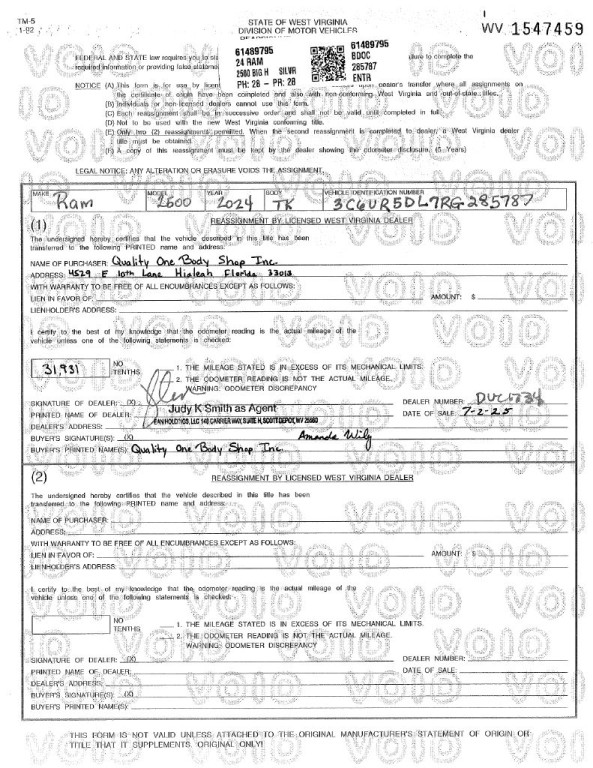 TM-5
1-92
STATE OF WEST VIRGINIA
DIVISION OF MOTOR VEHICLES
WV 1547459
61489795
24 RAM
2500 BIG H SILVR
PH: 28 - PR: 28
61489795
BDOC
285787
ENTR
FEDERAL AND STATE law requires you to
required information or providing false
ure to complete the
NOTICE (A) This form is for use by
dealer's transfer where all assignments on
the certificate of origin have been completed and also with non-conforming West Virginia and out-of-state titles.
(B) Individuals or non-licensed dealers cannot use this form.
(C) Each reassignment shall be in successive order and shall not be valid until completed in full.
(D) Not to be used with the new West Virginia conforming title.
(E) Only two (2) reassignments permitted. When the second reassignment is completed to dealer, a West Virginia dealer
title must be obtained.
(F) A copy of this reassignment must be kept by the dealer showing the odometer disclosure. (5 Years)
LEGAL NOTICE: ANY ALTERATION OR ERASURE VOIDS THE ASSIGNMENT.
MAKE Ram MODEL 2500 YEAR 2024 BODY TK VEHICLE IDENTIFICATION NUMBER 3C6UR5DL7RG285787
(1) REASSIGNMENT BY LICENSED WEST VIRGINIA DEALER
The undersigned hereby certifies that the vehicle described in this title has been
transferred to the following PRINTED name and address:
NAME OF PURCHASER: Quality One Body Shop Inc.
ADDRESS: 4529 E 10th Lane Hialeah Florida 33013
WITH WARRANTY TO BE FREE OF ALL ENCUMBRANCES EXCEPT AS FOLLOWS:
LIEN IN FAVOR OF: AMOUNT: $
LIENHOLDER'S ADDRESS:
I certify to the best of my knowledge that the odometer reading is the actual mileage of the
vehicle unless one of the following statements is checked:
31,931 NO TENTHS
1. THE MILEAGE STATED IS IN EXCESS OF ITS MECHANICAL LIMITS.
2. THE ODOMETER READING IS NOT THE ACTUAL MILEAGE.
WARNING: ODOMETER DISCREPANCY
SIGNATURE OF DEALER: (X) DEALER NUMBER:
PRINTED NAME OF DEALER Judy K Smith as Agent DATE OF SALE: 7-2-25
DEALER'S ADDRESS: EAN HOLDINGS, LLC 148 CARRIER WAY, SUITE H, SCOTT DEPOT, WV 25560
BUYER'S SIGNATURE(S): (X) Amanda Wily
BUYER'S PRINTED NAME(S): Quality One Body Shop Inc.
(2) REASSIGNMENT BY LICENSED WEST VIRGINIA DEALER
The undersigned hereby certifies that the vehicle described in this title has been
transferred to the following PRINTED name and address:
NAME OF PURCHASER:
ADDRESS:
WITH WARRANTY TO BE FREE OF ALL ENCUMBRANCES EXCEPT AS FOLLOWS:
LIEN IN FAVOR OF: AMOUNT: $
LIENHOLDER'S ADDRESS:
I certify to the best of my knowledge that the odometer reading is the actual mileage of the
vehicle unless one of the following statements is checked:
NO TENTHS
1. THE MILEAGE STATED IS IN EXCESS OF ITS MECHANICAL LIMITS.
2. THE ODOMETER READING IS NOT THE ACTUAL MILEAGE.
WARNING: ODOMETER DISCREPANCY
SIGNATURE OF DEALER: (X) DEALER NUMBER:
PRINTED NAME OF DEALER: DATE OF SALE:
DEALER'S ADDRESS:
BUYER'S SIGNATURE(S): (X)
BUYER'S PRINTED NAME(S):
THIS FORM IS NOT VALID UNLESS ATTACHED TO THE ORIGINAL MANUFACTURER'S STATEMENT OF ORIGIN OR
TITLE THAT IT SUPPLEMENTS. ORIGINAL ONLY!